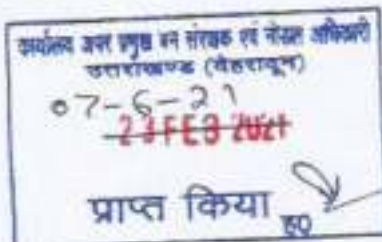 कार्यालय अपर प्रमुख वन संरक्षक एवं नोडल अधिकारी
उत्तराखण्ड (देहरादून)
07-6-21
23 FEB 2021
प्राप्त किया
ह०